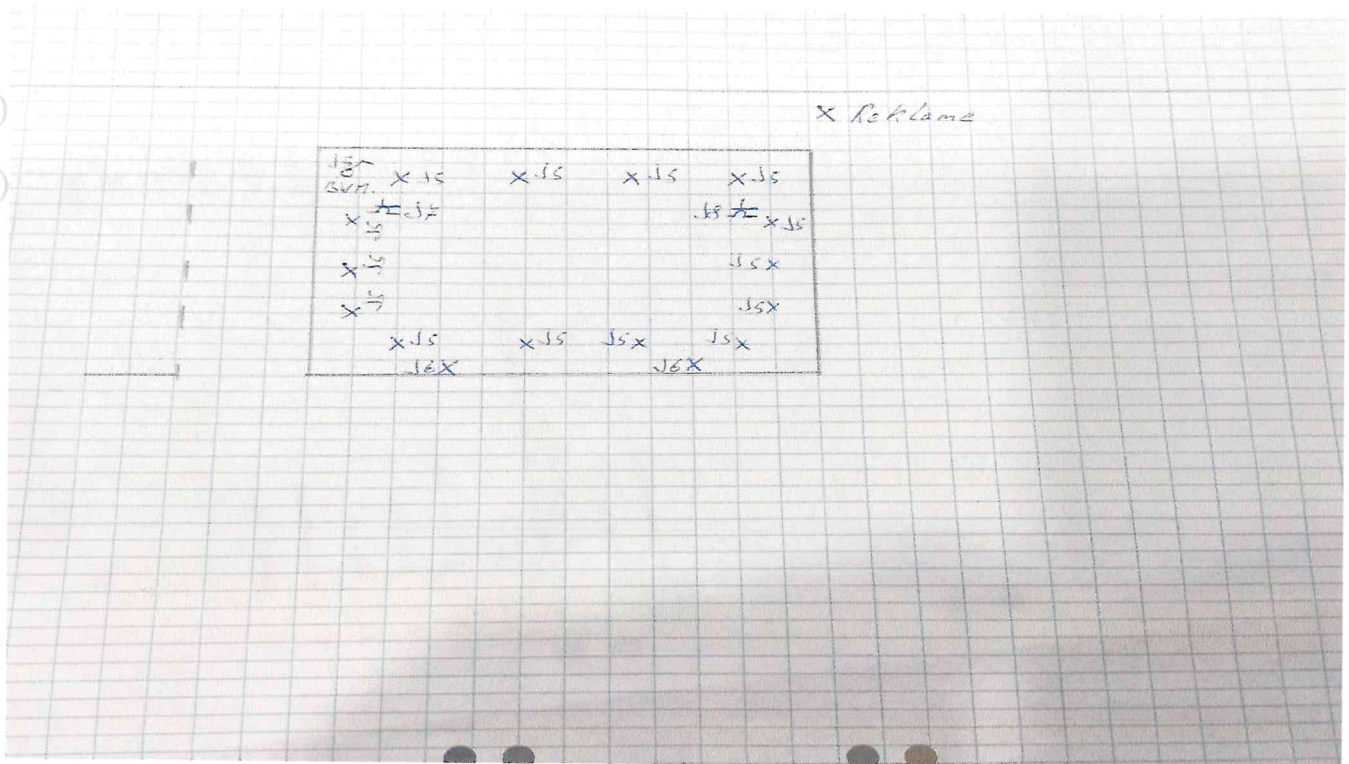 x Reklame
x J5 x J5 x J5 x J5
BVM.
J7 J8
x J5 x J5
x J5 J5 x
x J5 J5x
x J5 x J5 J5 x J5 x
J6X J6X